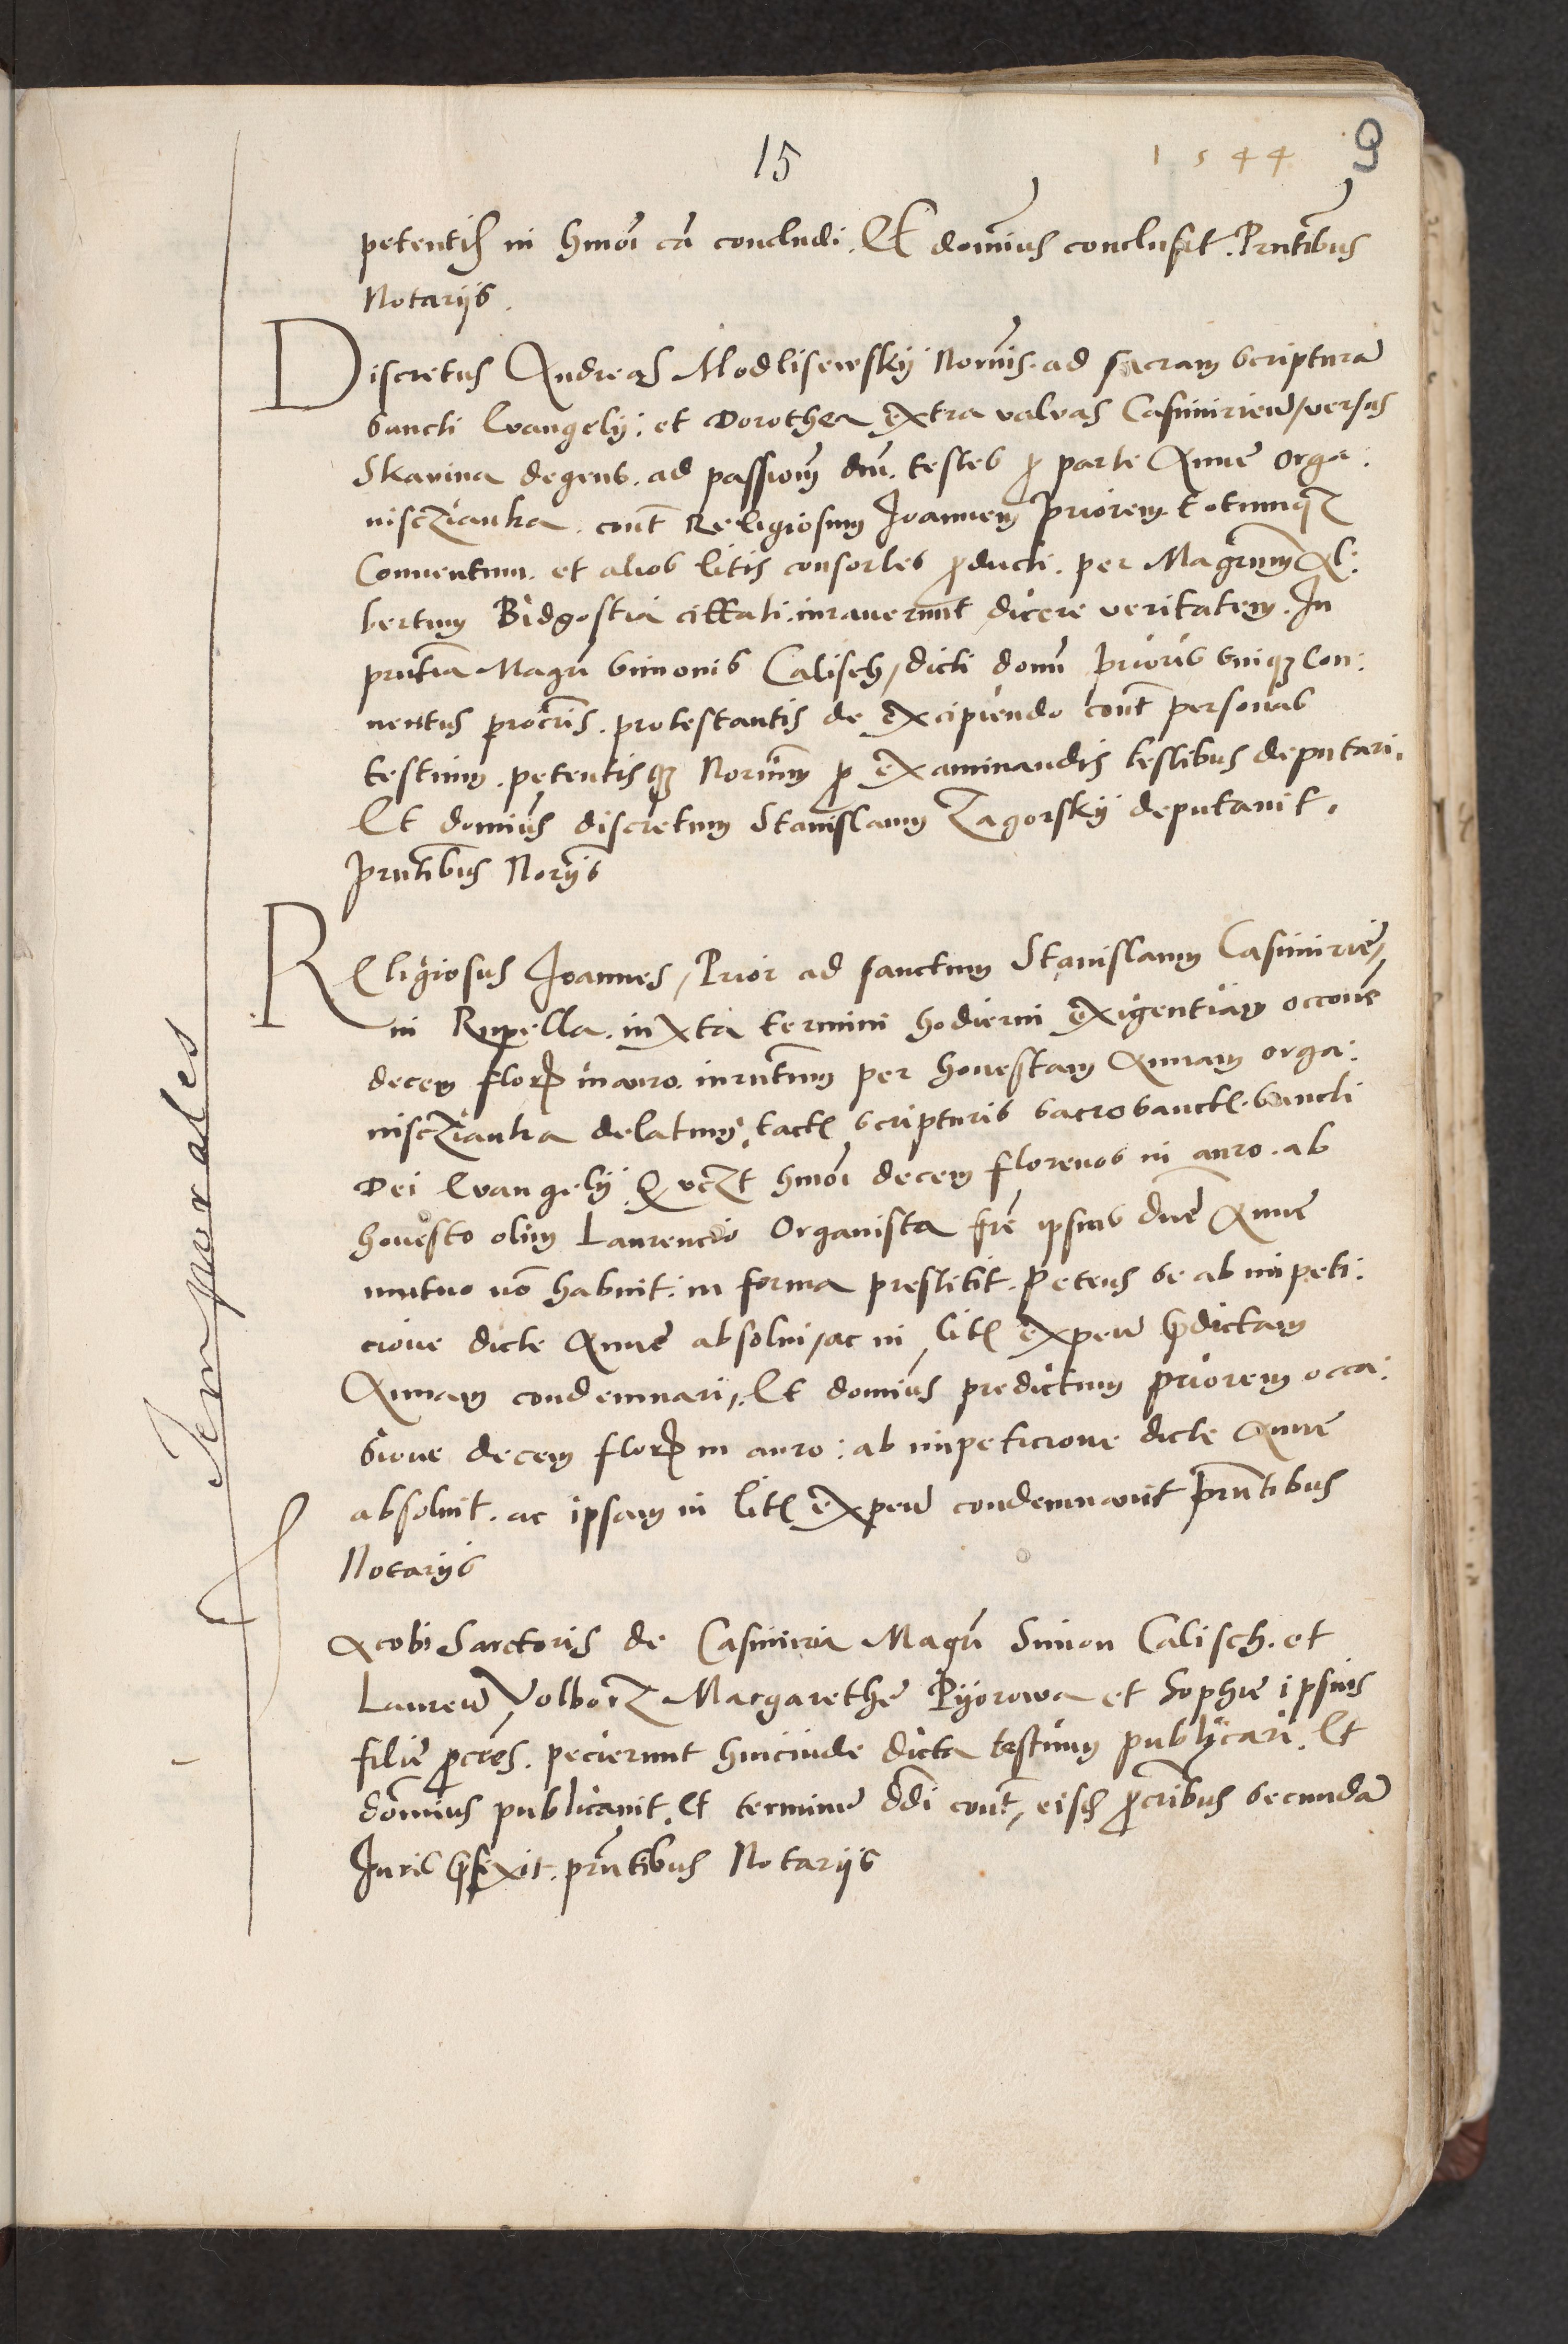 15 1544 9
petentis in hmoi ca concludi. Et dominus conclusit. Pntibus
Notarijs.
Discretus Andreas Modlisewskij Norius. ad sacram scriptura
sancti Evangelij: et Dorothea extra valvas Casimirien, versus
Skavina degens. ad passionem dni. testes p parte Anne Orga:
niscziauka. cont Religiosum Joannem Priorem totumqz
Conventum. et alios litis consortes producti. per Magrum Al:
bertum Bidgostia cittati. iuraverunt dicere veritatem. In
pntia Magri Simonis Calisch, dicti domi prioris suiqz Con:
ventus procris. protestantis de excipiendo cont personas
testium. petentisqz Norium p examinandis testibus deputari.
Et dominus discretum Stanislaum Zagorskij deputavit.
pntibus Norijs
Religiosus Joannes, Prior ad sanctum Stanislaum Casimirie,
in Rupella. iuxta termini hodierni exigentiam occone
decem flor in auro. iurntum per honestam Annam orga:
niscziauka delatum, tact scripturis sacrosanct. sancti
Dei Evangelij Q vczt hmoi decem florenos in auro. ab
honesto olim Laurencio Organista fre ipsius dne Anne
mutuo no habuit: in forma prestitit. Petens se ab impeti:
cione dicte Anne absolvi, ac in lit expen pdictam
Annam condemnari,. Et dominus predictum priorem occa:
sione decem flor in auro: ab impeticione dicte Anne
absolvit. ac ipsam in lit expen condemnavit pntibus
Notarijs
Jacobi Sarctoris de Casimiria Magri Simon Calisch. et
Lauren Volborz Margarethe Pijorowa et Sophie ipsius
filie pcres. pecierunt hincinde dicta testium publicari. Et
dominus publicavit. Et terminu ddi cont, eisd pcribus secunda
Juril pfixit. pntibus Notarijs
Temporales